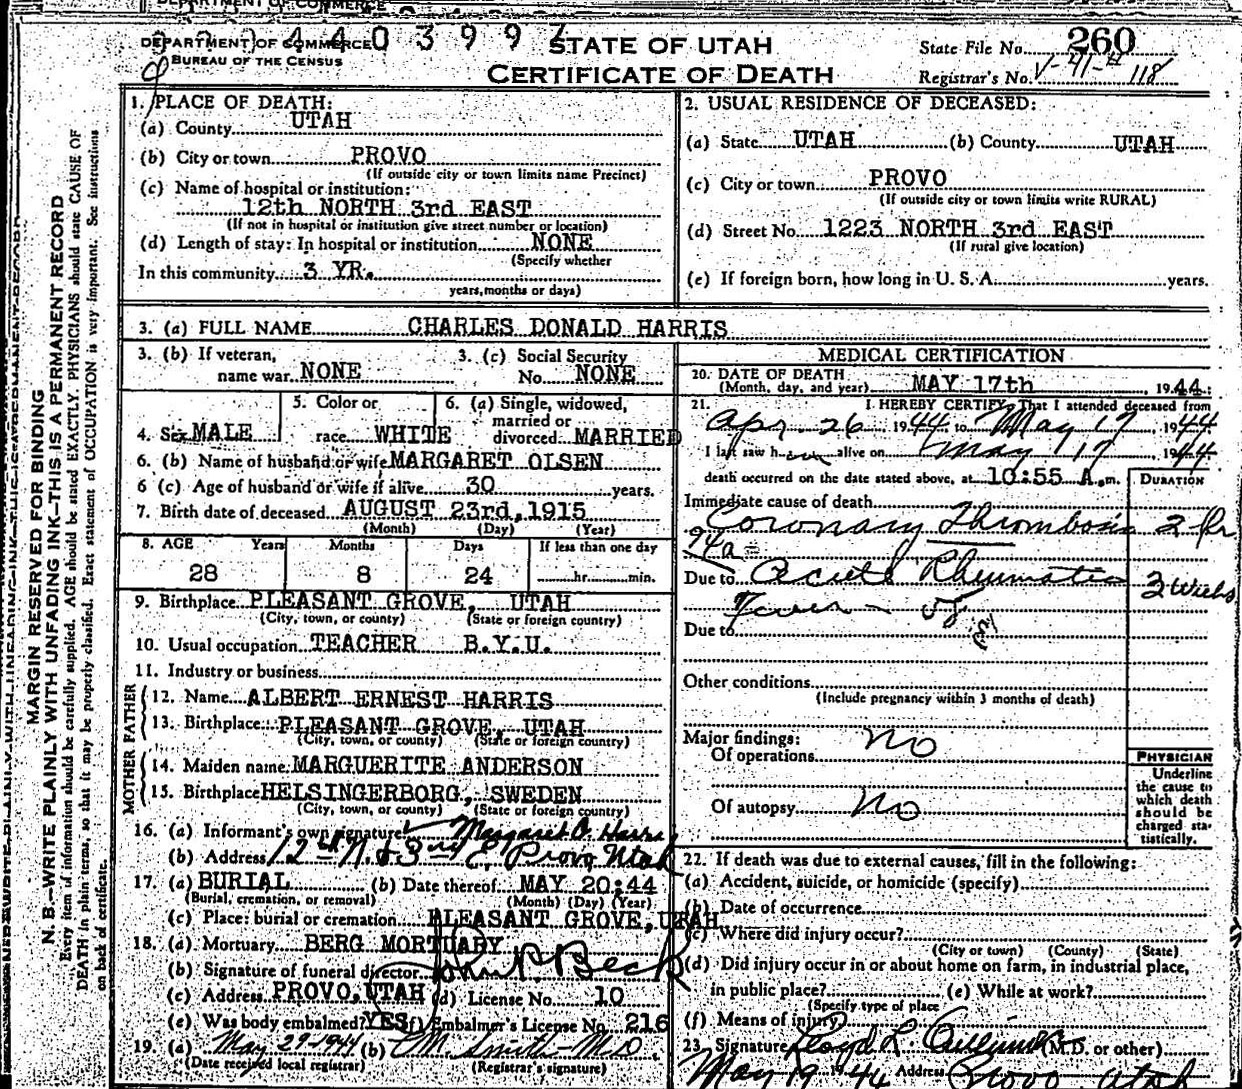 DEPARTMENT OF COMMERCE
BUREAU OF THE CENSUS
STATE OF UTAH
CERTIFICATE OF DEATH
State File No. 260
Registrar's No. V-41-# 118
MARGIN RESERVED FOR BINDING
N. B.—WRITE PLAINLY WITH UNFADING INK—THIS IS A PERMANENT RECORD
Every item of information should be carefully supplied. AGE should be stated EXACTLY. PHYSICIANS should state CAUSE OF
DEATH in plain terms, so that it may be properly classified. Exact statement of OCCUPATION is very important. See instructions
on back of certificate.
1. PLACE OF DEATH:
(a) County UTAH
(b) City or town PROVO
(If outside city or town limits name Precinct)
(c) Name of hospital or institution:
12th NORTH 3rd EAST
(If not in hospital or institution give street number or location)
(d) Length of stay: In hospital or institution NONE
(Specify whether
In this community 3 YR.
years, months or days)
2. USUAL RESIDENCE OF DECEASED:
(a) State UTAH (b) County UTAH
(c) City or town PROVO
(If outside city or town limits write RURAL)
(d) Street No. 1223 NORTH 3rd EAST
(If rural give location)
(e) If foreign born, how long in U. S. A. years.
3. (a) FULL NAME CHARLES DONALD HARRIS
3. (b) If veteran, name war NONE
3. (c) Social Security No. NONE
4. Sex MALE
5. Color or race WHITE
6. (a) Single, widowed, married or divorced MARRIED
6. (b) Name of husband or wife MARGARET OLSEN
6 (c) Age of husband or wife if alive 30 years.
7. Birth date of deceased AUGUST 23rd, 1915
(Month) (Day) (Year)
8. AGE Years Months Days If less than one day
28 8 24 hr. min.
9. Birthplace PLEASANT GROVE, UTAH
(City, town, or county) (State or foreign country)
10. Usual occupation TEACHER B.Y.U.
11. Industry or business
FATHER
12. Name ALBERT ERNEST HARRIS
13. Birthplace PLEASANT GROVE, UTAH
(City, town, or county) (State or foreign country)
MOTHER
14. Maiden name MARGUERITE ANDERSON
15. Birthplace HELSINGERBORG, SWEDEN
(City, town, or county) (State or foreign country)
16. (a) Informant's own signature Margaret O. Harris
(b) Address 12th N. & 3rd E. Provo Utah
17. (a) BURIAL (b) Date thereof MAY 20:44
(Burial, cremation, or removal) (Month) (Day) (Year)
(c) Place: burial or cremation PLEASANT GROVE, UTAH
18. (a) Mortuary BERG MORTUARY
(b) Signature of funeral director John P Beck
(c) Address PROVO, UTAH (d) License No. 10
(e) Was body embalmed? YES (f) Embalmer's License No. 216
19. (a) May 29-1944 (b) Smith-MD
(Date received local registrar) (Registrar's signature)
MEDICAL CERTIFICATION
20. DATE OF DEATH
(Month, day, and year) MAY 17th 1944:
21. I HEREBY CERTIFY, That I attended deceased from
Apr. 26 1944 to May 17, 1944
I last saw him alive on May 17 1944
death occurred on the date stated above, at 10:55 A.m.
DURATION
Immediate cause of death
Coronary Thrombosis 2 hr
94a
Due to Acute Rheumatic 3 weeks
Fever - 58
Due to
Other conditions
(Include pregnancy within 3 months of death)
Major findings:
Of operations No
Of autopsy No
PHYSICIAN
Underline
the cause to
which death
should be
charged sta-
tistically.
22. If death was due to external causes, fill in the following:
(a) Accident, suicide, or homicide (specify)
(b) Date of occurrence
(c) Where did injury occur?
(City or town) (County) (State)
(d) Did injury occur in or about home on farm, in industrial place,
in public place? (e) While at work?
(Specify type of place
(f) Means of injury
23. Signature Lloyd L. (M.D. or other)
May 19 1944 Address Provo Utah